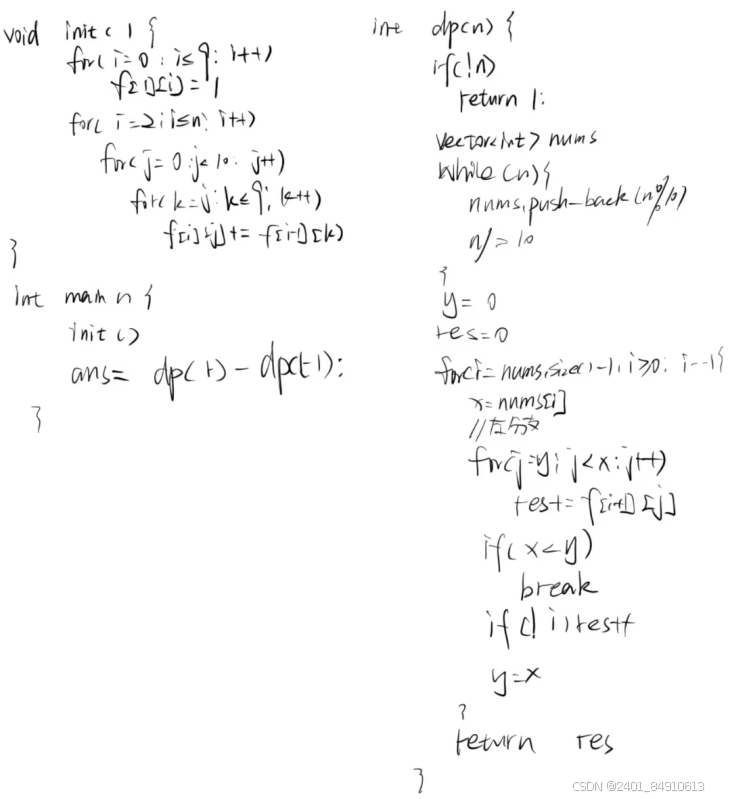 void init() {
for( i=0; i≤9; i++)
f[1][i] = 1
for( i=2; i≤n; i++)
for( j=0; j<10; j++)
for( k=j; k≤9; k++)
f[i][j] += f[i-1][k]
}
int main() {
init()
ans= dp(r) - dp(l-1);
}
int dp(n) {
if(!n)
return 1;
vector<int> nums
while(n){
nums.push_back(n%10)
n/=10
}
y=0
res=0
for(i=nums.size()-1; i≥0; i--){
x=nums[i]
//左分支
for(j=y; j<x; j++)
res+= f[i+1][j]
if(x<y)
break
if(!i)res++
y=x
}
return res
}
CSDN @2401_84910613